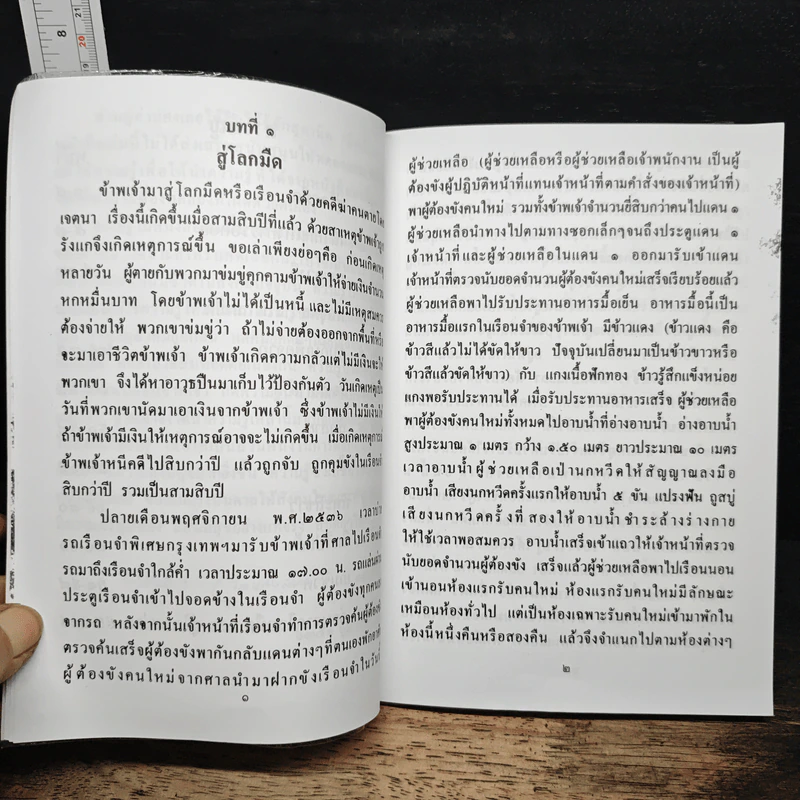 8
21
20
19
บทที่ ๑
สู่โลกมืด
ข้าพเจ้ามาสู่โลกมืดหรือเรือนจำด้วยคดีฆ่าคนตายโดย
เจตนา เรื่องนี้เกิดขึ้นเมื่อสามสิบปีที่แล้ว ด้วยสาเหตุข้าพเจ้าถูก
รังแกจึงเกิดเหตุการณ์ขึ้น ขอเล่าเพียงย่อๆคือ ก่อนเกิดเหตุ
หลายวัน ผู้ตายกับพวกมาข่มขู่คุกคามข้าพเจ้าให้จ่ายเงินจำนวน
หกหมื่นบาท โดยข้าพเจ้าไม่ได้เป็นหนี้ และไม่มีเหตุสมควร
ต้องจ่ายให้ พวกเขาข่มขู่ว่า ถ้าไม่จ่ายต้องออกจากพื้นที่หรือ
จะมาเอาชีวิตข้าพเจ้า ข้าพเจ้าเกิดความกลัวแต่ไม่มีเงินจะให้
พวกเขา จึงได้หาอาวุธปืนมาเก็บไว้ป้องกันตัว วันเกิดเหตุเป็น
วันที่พวกเขานัดมาเอาเงินจากข้าพเจ้า ซึ่งข้าพเจ้าไม่มีเงินให้
ถ้าข้าพเจ้ามีเงินให้เหตุการณ์อาจจะไม่เกิดขึ้น เมื่อเกิดเหตุการณ์
ข้าพเจ้าหนีคดีไปสิบกว่าปี แล้วถูกจับ ถูกคุมขังในเรือนจำ
สิบกว่าปี รวมเป็นสามสิบปี
ปลายเดือนพฤศจิกายน พ.ศ.๒๕๓๖ เวลาบ่าย
รถเรือนจำพิเศษกรุงเทพฯมารับข้าพเจ้าที่ศาลไปเรือนจำ
รถมาถึงเรือนจำใกล้ค่ำ เวลาประมาณ ๑๗.๐๐ น. รถแล่นผ่าน
ประตูเรือนจำเข้าไปจอดข้างในเรือนจำ ผู้ต้องขังทุกคนลง
จากรถ หลังจากนั้นเจ้าหน้าที่เรือนจำทำการตรวจค้นผู้ต้องขัง
ตรวจค้นเสร็จผู้ต้องขังพากันกลับแดนต่างๆที่ตนเองพักอาศัย
ผู้ต้องขังคนใหม่จากศาลนำมาฝากขังเรือนจำในวันนี้
๑
ผู้ช่วยเหลือ (ผู้ช่วยเหลือหรือผู้ช่วยเหลือเจ้าพนักงาน เป็นผู้
ต้องขังผู้ปฏิบัติหน้าที่แทนเจ้าหน้าที่ตามคำสั่งของเจ้าหน้าที่)
พาผู้ต้องขังคนใหม่ รวมทั้งข้าพเจ้าจำนวนยี่สิบกว่าคนไปแดน ๑
ผู้ช่วยเหลือนำทางไปตามทางซอกเล็กๆจนถึงประตูแดน ๑
เจ้าหน้าที่และผู้ช่วยเหลือในแดน ๑ ออกมารับเข้าแดน
เจ้าหน้าที่ตรวจนับยอดจำนวนผู้ต้องขังคนใหม่เสร็จเรียบร้อยแล้ว
ผู้ช่วยเหลือพาไปรับประทานอาหารมื้อเย็น อาหารมื้อนี้เป็น
อาหารมื้อแรกในเรือนจำของข้าพเจ้า มีข้าวแดง (ข้าวแดง คือ
ข้าวสีแล้วไม่ได้ขัดให้ขาว ปัจจุบันเปลี่ยนมาเป็นข้าวขาวหรือ
ข้าวสีแล้วขัดให้ขาว) กับ แกงเนื้อฟักทอง ข้าวรู้สึกแข็งหน่อย
แกงพอรับประทานได้ เมื่อรับประทานอาหารเสร็จ ผู้ช่วยเหลือ
พาผู้ต้องขังคนใหม่ทั้งหมดไปอาบน้ำที่อ่างอาบน้ำ อ่างอาบน้ำ
สูงประมาณ ๑ เมตร กว้าง ๑.๕๐ เมตร ยาวประมาณ ๑๐ เมตร
เวลาอาบน้ำผู้ช่วยเหลือเป่านกหวีดให้สัญญาณลงมือ
อาบน้ำ เสียงนกหวีดครั้งแรกให้อาบน้ำ ๕ ขัน แปรงฟัน ถูสบู่
เสียงนกหวีดครั้งที่สองให้อาบน้ำชำระล้างร่างกาย
ให้ใช้เวลาพอสมควร อาบน้ำเสร็จเข้าแถวให้เจ้าหน้าที่ตรวจ
นับยอดจำนวนผู้ต้องขัง เสร็จแล้วผู้ช่วยเหลือพาไปเรือนนอน
เข้านอนห้องแรกรับคนใหม่ ห้องแรกรับคนใหม่มีลักษณะ
เหมือนห้องทั่วไป แต่เป็นห้องเฉพาะรับคนใหม่เข้ามาพักใน
ห้องนี้หนึ่งคืนหรือสองคืน แล้วจึงจำแนกไปตามห้องต่างๆ
๒